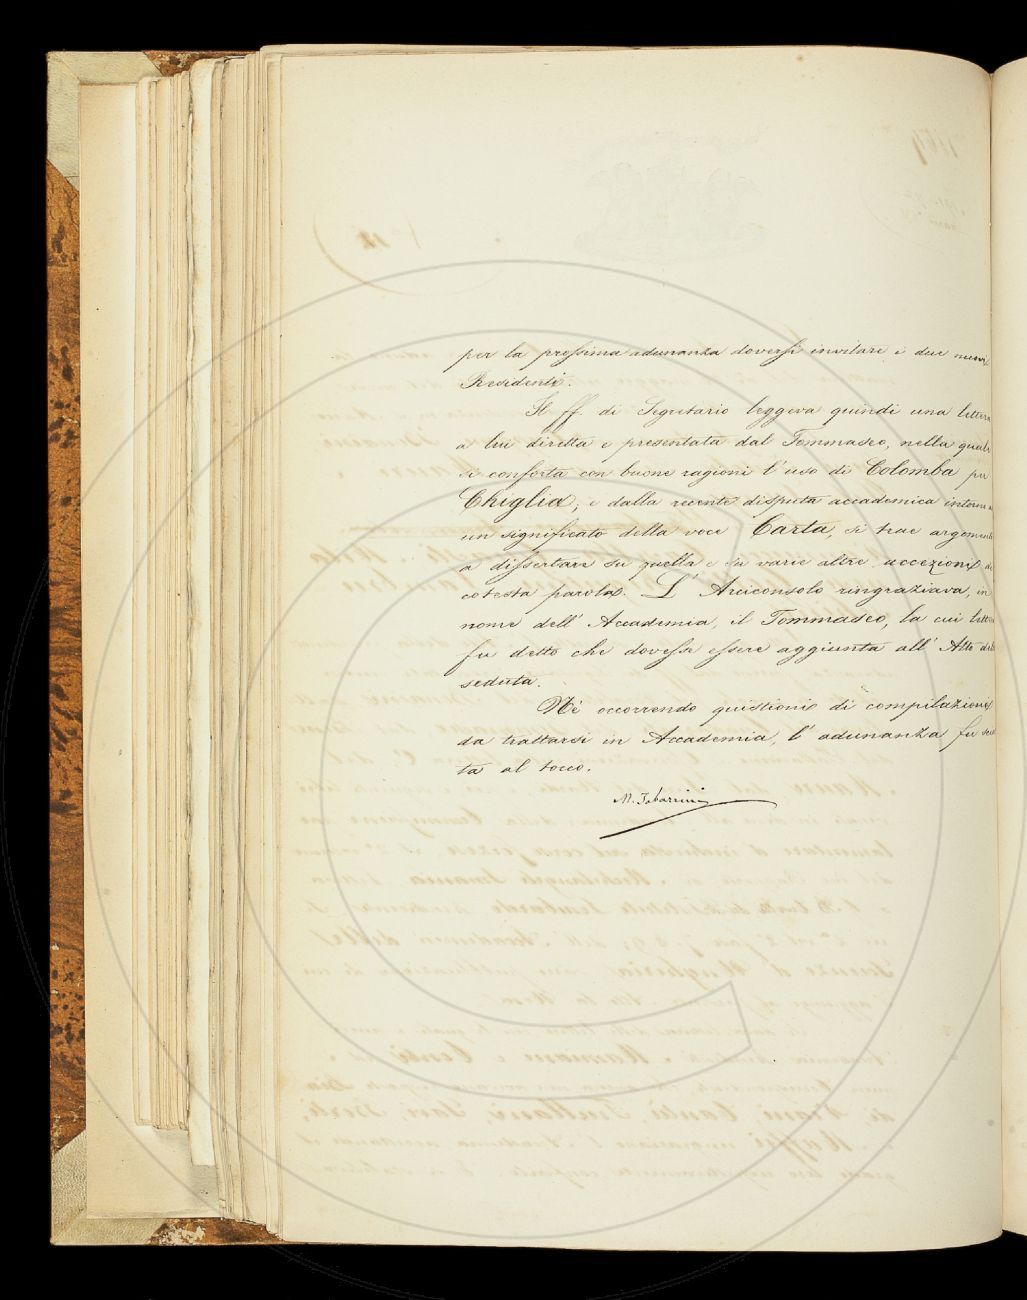 per la prossima adunanza doversi invitare i due nuovi
Residenti.
Il ff. di Segretario leggeva quindi una lettera
a lui diretta e presentata dal Tommaseo, nella quale
si conforta con buone ragioni l'uso di Colomba per
Chiglia; e dalla recente disputa accademica intorno a
un significato della voce Carta, si trae argomento
a dissertare su quella e su varie altre accezioni di
cotesta parola. L'Arciconsolo ringraziava, in
nome dell'Accademia, il Tommaseo, la cui lettera
fu detto che dovesse essere aggiunta all'Atto della
seduta.
Nè occorrendo quistioni di compilazione
da trattarsi in Accademia, l'adunanza fu sciol
ta al tocco.
M. Tabarrini